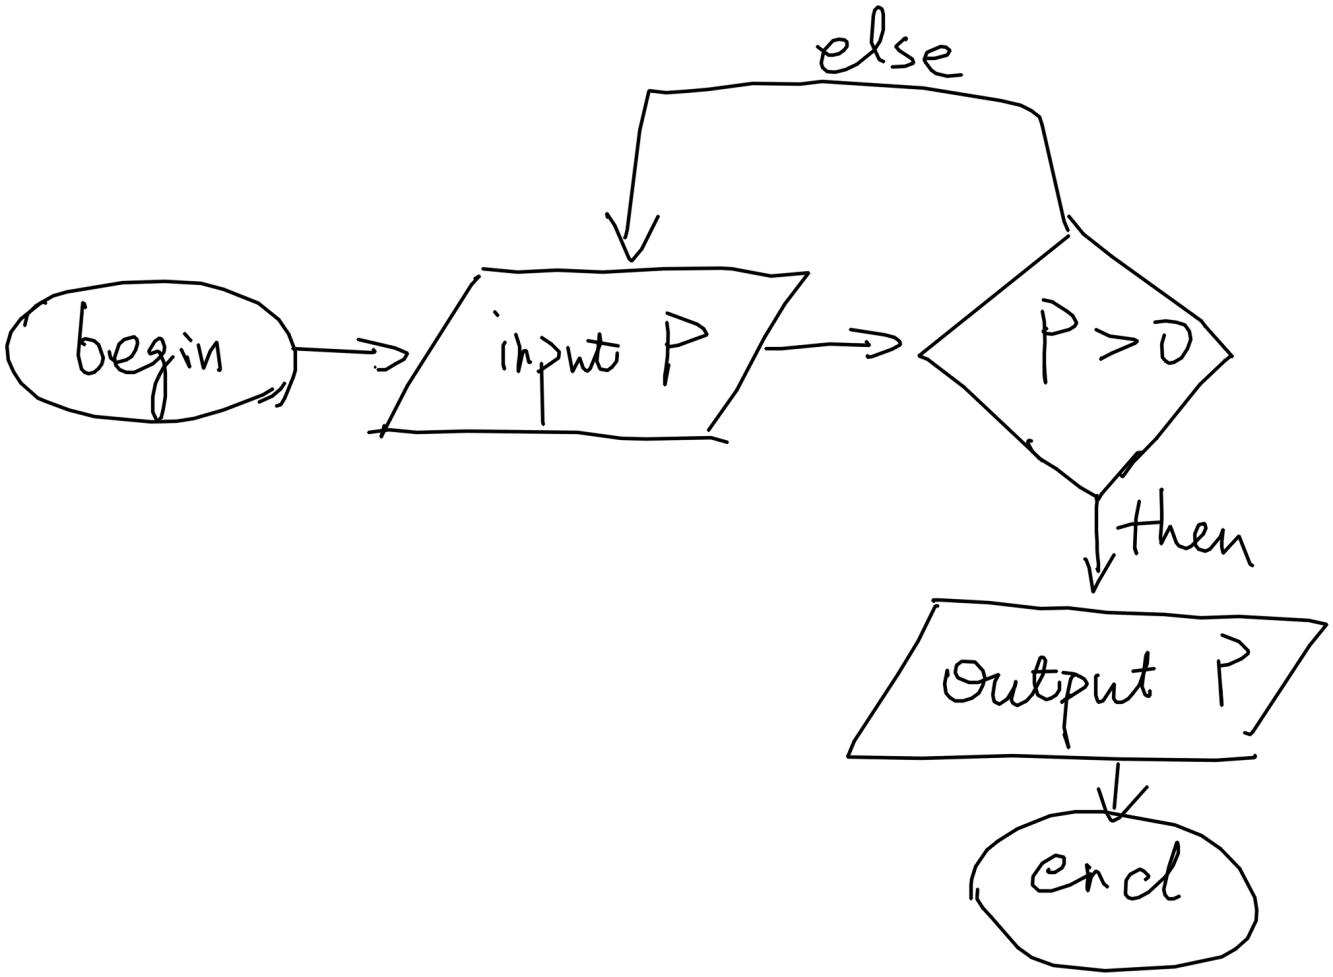 else
begin
input P
P > 0
then
output P
end